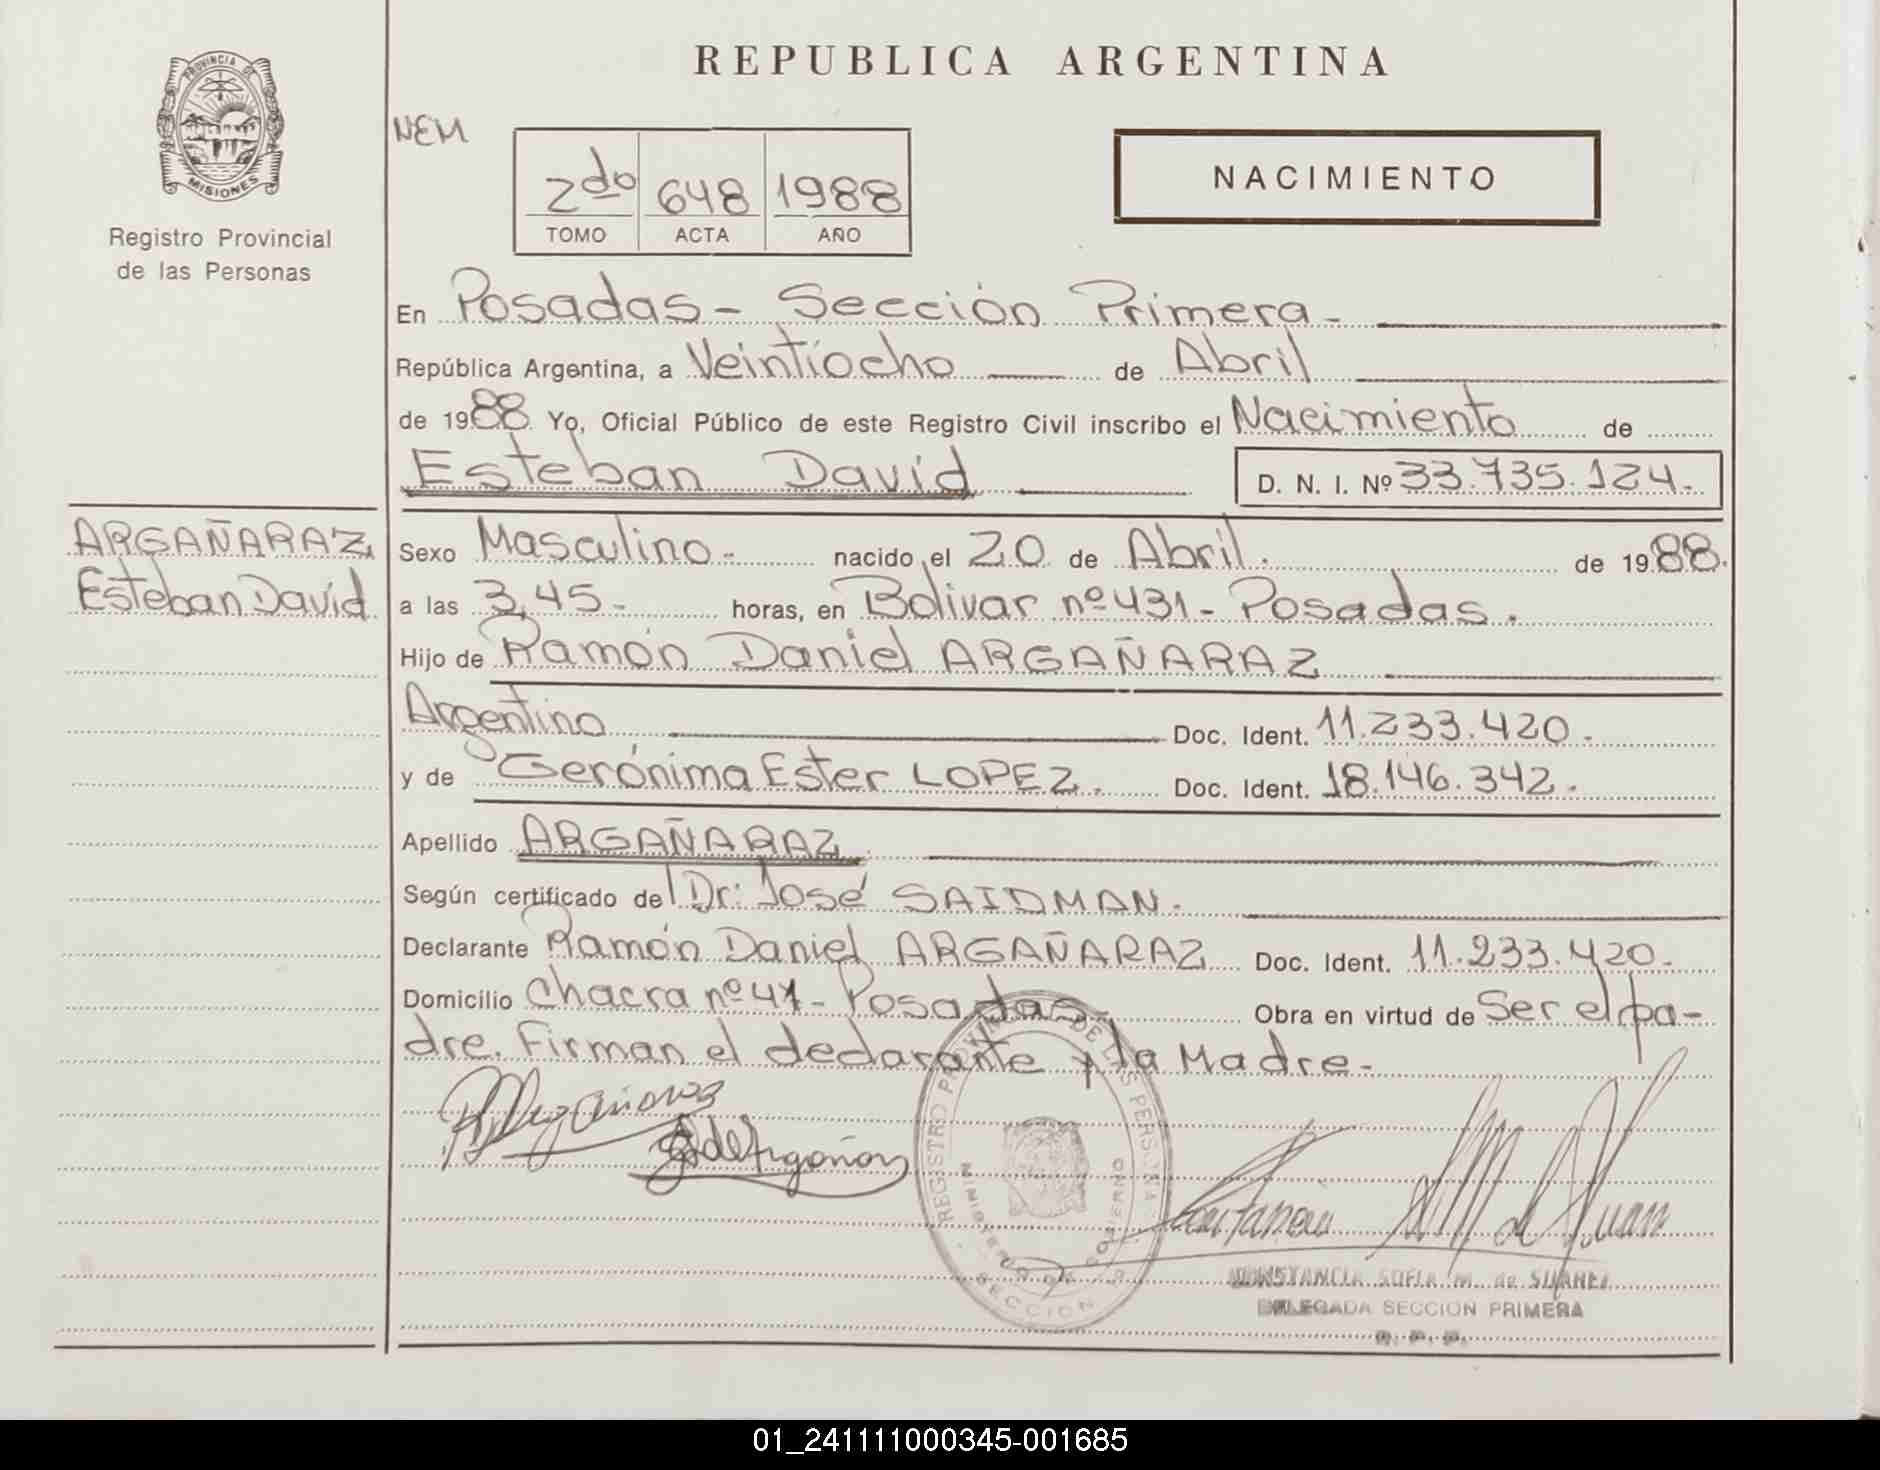 PROVINCIA DE
MISIONES
Registro Provincial
de las Personas
ARGAÑARAZ
Esteban David
REPUBLICA ARGENTINA
NEM
2do 648 1988
TOMO ACTA AÑO
NACIMIENTO
En Posadas - Sección Primera -
República Argentina, a Veintiocho de Abril
de 1988. Yo, Oficial Público de este Registro Civil inscribo el Nacimiento de
Esteban David D. N. I. Nº 33.735.124.
Sexo Masculino - nacido el 20 de Abril. de 1988.
a las 3,45 - horas, en Bolivar nº 431 - Posadas.
Hijo de Ramón Daniel ARGAÑARAZ
Argentino Doc. Ident. 11.233.420.
y de Gerónima Ester LOPEZ. Doc. Ident. 18.146.342.
Apellido ARGAÑARAZ
Según certificado de Dr: José SAIDMAN.
Declarante Ramón Daniel ARGAÑARAZ Doc. Ident. 11.233.420.
Domicilio Chacra nº 47 - Posadas - Obra en virtud de Ser el pa-
dre. Firman el declarante y la Madre.
REGISTRO PROVINCIAL DE LAS PERSONAS
MINISTERIO DE GOBIERNO
SECCION
CONSTANCIA SOFIA M. de SUAREZ
DELEGADA SECCION PRIMERA
R. P. P.
01_241111000345-001685